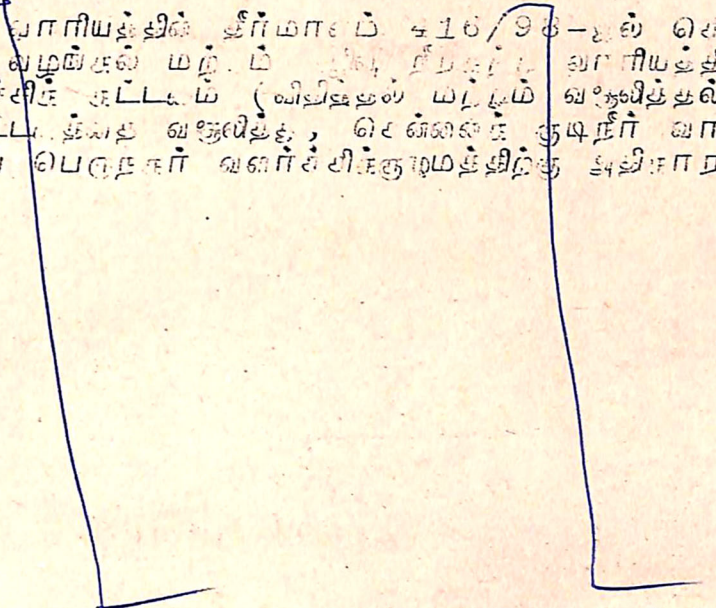 வாரியத்தில் தீர்மானம் 416/98-ல் செ
வழங்கல் மற்றும் வாரியத்த
கட்டணம் (விதித்தல் மற்றும் வசூலித்தல்
வசூலித்து, சென்னைக் குடிநீர் வா
பெருநகர் வளர்ச்சிக்குழுமத்திற்கு அதிகார